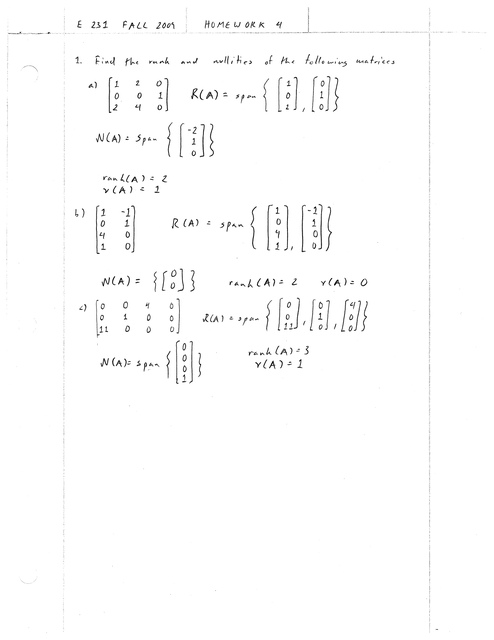 E 231 FALL 2009 HOMEWORK 4
1. Find the rank and nullities of the following matrices
a) [1 2 0; 0 0 1; 2 4 0] R(A) = span { [1; 0; 2], [0; 1; 0] }
N(A) = span { [-2; 1; 0] }
rank(A) = 2
ν(A) = 1
b) [1 -1; 0 1; 4 0; 1 0] R(A) = span { [1; 0; 4; 1], [-1; 1; 0; 0] }
N(A) = { [0; 0] } rank(A) = 2 ν(A) = 0
c) [0 0 4 0; 0 1 0 0; 11 0 0 0] R(A) = span { [0; 0; 11], [0; 1; 0], [4; 0; 0] }
N(A) = span { [0; 0; 0; 1] } rank(A) = 3
ν(A) = 1